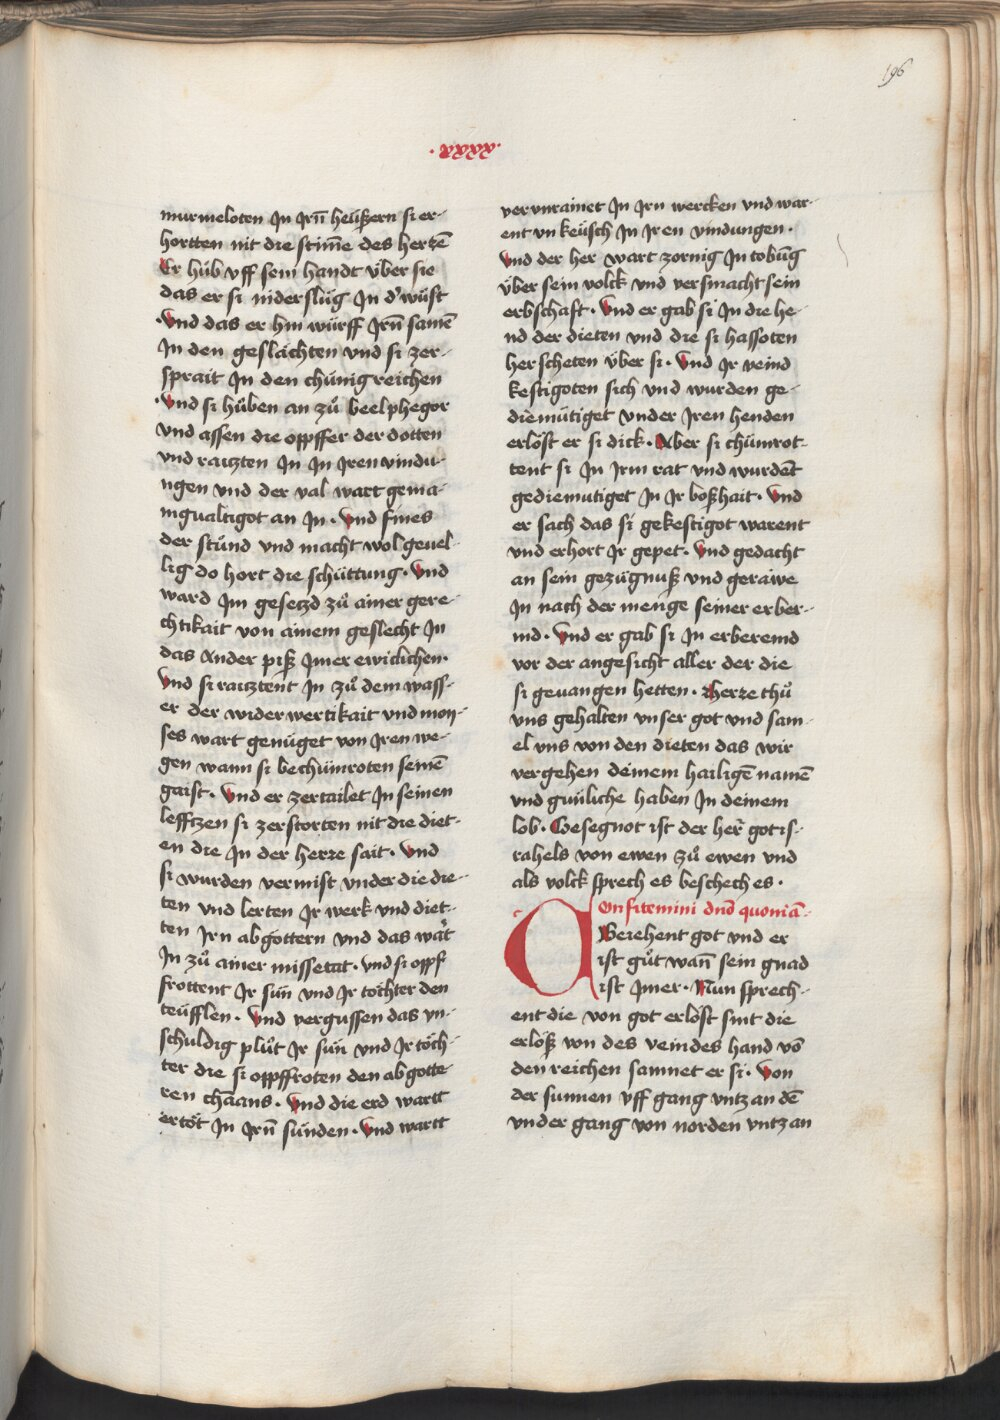 196
· xxxx ·
murmeloten Jn Jrn̄ heüßern si er-
hortten nit die stim̄e des herzē
Er hüb vff sein handt über sie
das er si niderslüg Jn d' wüst
·Vnd das er hin würff Jrn̄ samē
Jn den geslächten vnd si zer-
sprait Jn den chünig reichen
·Vnd si hüben an zů beelphegor
vnd assen die oppffer der dotten
vnd raitzten Jn Jn Jren vindu-
ngen vnd der val wart gema-
ingualtigot an Jn · Vnd fines
der stůnd vnd macht wol geuel-
lig do hort die schüttung · Vnd
ward Jm gesetzd zů ainer gere-
chtikait von ainem geslecht Jn
das Ander piß Jmer ewiclichen·
Vnd si raitztent Jn zů dem wass-
er der widerwertikait vnd moy-
ses wart genüget von Jren we-
gen wann si bechümroten seinē
gaist · Vnd er zertailet Jn seinen
lefftzen si zerstorten nit die diet-
en die Jn der herre sait · Vnd
si wurden vermist vnder die die-
ten vnd lerten Jr werk vnd diet-
ten Jrn abgöttern vnd das wät
Jn zů ainer missetat · vnd si opff
frottent Jr sün vnd Jr töchter den
teüfflen · Vnd vergussen das vn-
schuldig plůt Jr sün vnd Jr töch-
ter die si oppffroten den abgotte-
ren chāans · Vnd die erd wartt
ertöt Jn Jrn̄ sünden · Vnd wartt
vervnrainet Jn Jrn wercken vnd war-
ent vnkeüsch Jn Jren vindungen ·
Vnd der her wart zornig Jn tobūg
über sein volck vnd versmacht sein
erbschaft · Vnd er gab si Jn die he-
nd der dieten vnd die si hassoten
herscheten über si · Vnd Jr veind
kestigoten sich vnd wurden ge-
diemütiget vnder Jren henden
erlöst er si dick · Aber si chümrot-
tent si Jn Jrm rat vnd wurdēt
gediemutiget Jn Jr boßhait · Vnd
er sach das si gekestigot warent
vnd erhort Jr gepet · Vnd gedacht
an sein gezügnuß vnd gerawe
Jn nach der menge seiner erber-
md · Vnd er gab si Jn erbermd
vor der angesicht aller der die
si geuangen hetten · Herze thů
vns gehalten vnser got vnd sam-
el vns von den dieten das wir
vergehen deinem hailigē namē
vnd günliche haben Jn deinem
lob · Gesegnot ist der her̄ got is-
rahels von ewen zů ewen vnd
als volck sprech es beschech es ·
Confitemini dn̄o quoniā·
Verehent got vnd er
ist gůt wan̄ sein gnad
ist Jmer · Nun sprech-
ent die von got erlöst sint die
erlöß von des veindes hand vō
den reichen samnet er si · Von
der sunnen vff gang vntz an dē
vnder gang von norden vntz an